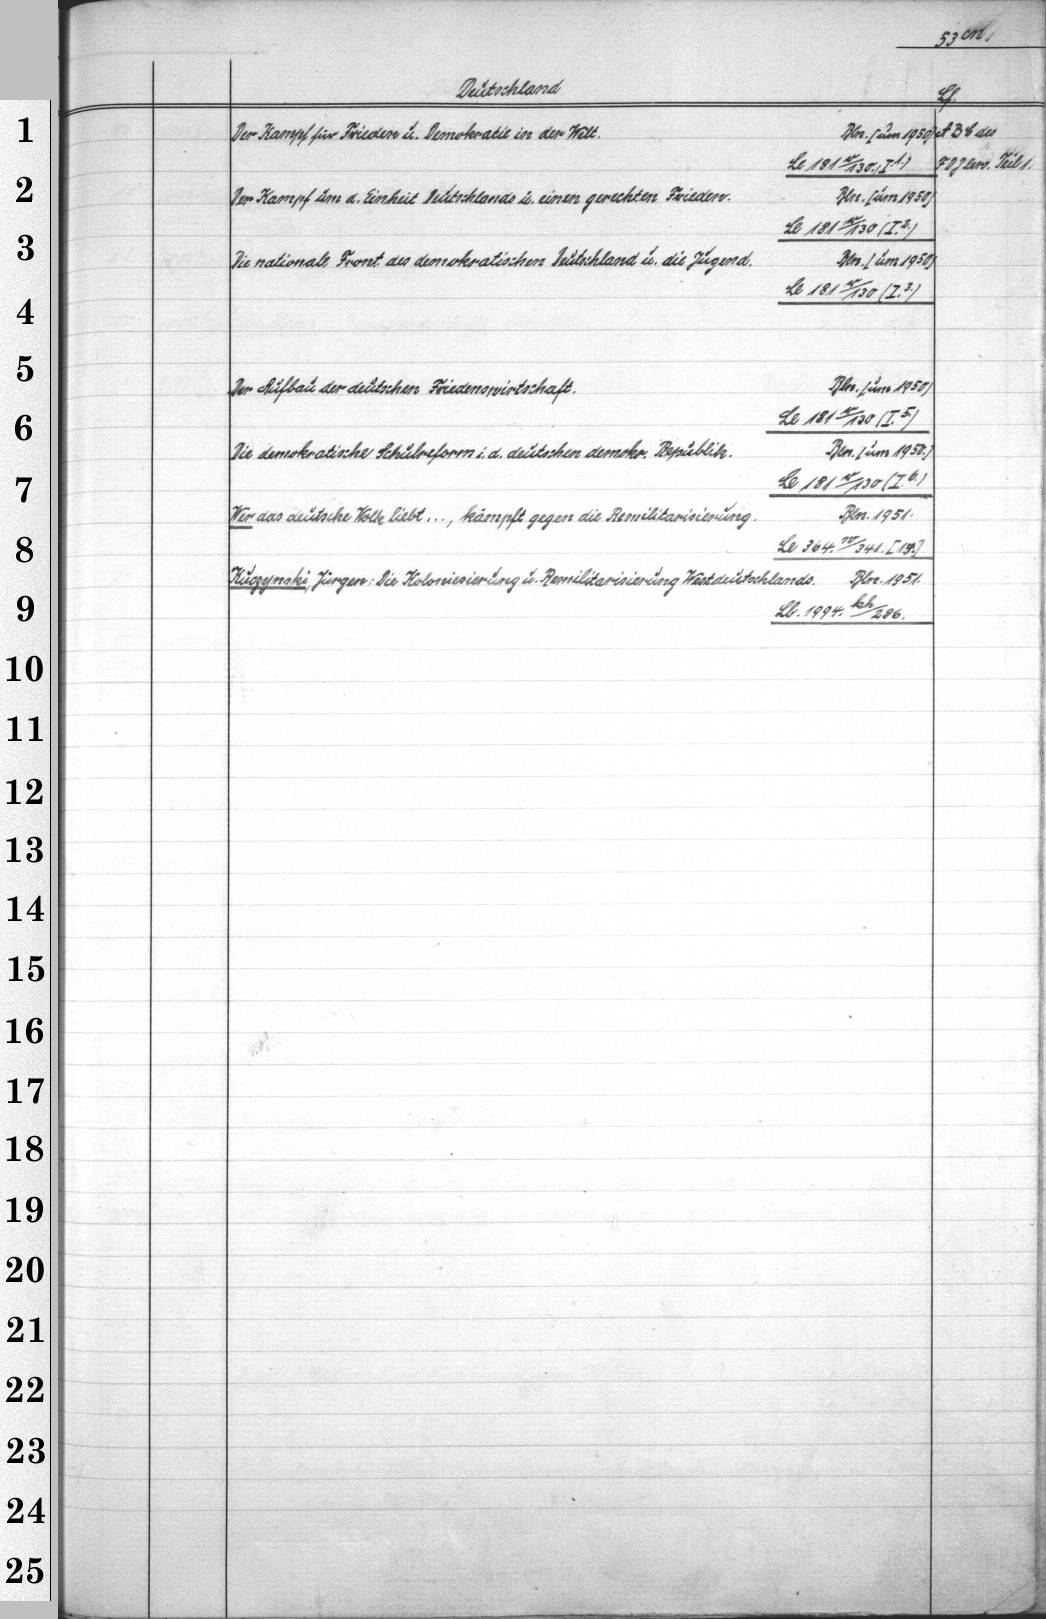 53
Deutschland
Lf.
1
Der Kampf für Frieden u. Demokratie in der Welt. Bln. [um 1950] A B C des
Le 181 w/130. (I.1.) FDJlers. Teil 1.
2
Der Kampf um d. Einheit Deutschlands u. einen gerechten Frieden. Bln. [um 1950]
Le 181 w/130 (I.2.)
3
Die nationale Front des demokratischen Deutschland u. die Jugend. Bln. [um 1950]
Le 181 w/130 (I.3.)
4
5
Der Aufbau der deutschen Friedenswirtschaft. Bln. [um 1950]
Le 181 w/130 (I.5.)
6
Die demokratische Schulreform i. d. deutschen demokr. Republik. Bln. [um 1950.]
Le 181 w/130 (I.6.)
7
Wer das deutsche Volk liebt..., kämpft gegen die Remilitarisierung. Bln. 1951.
8
Le 364. /341. [19.]
Kuczynski, Jürgen: Die Kolonisierung u. Remilitarisierung Westdeutschlands. Bln. 1951.
9
Lb. 1994. kh/286.
10
11
12
13
14
15
16
17
18
19
20
21
22
23
24
25